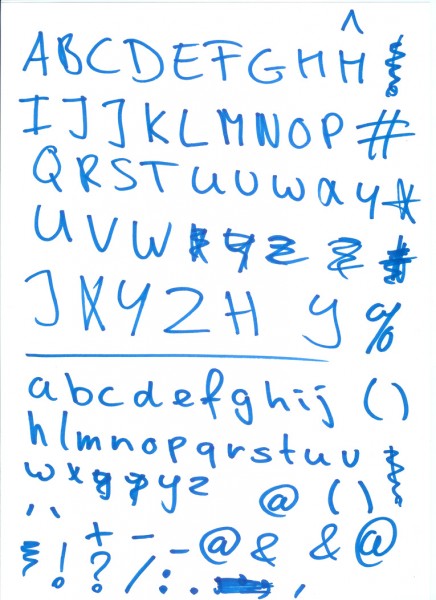 ^
ABCDEFGHH
IJJKLMNOP#
QRSTUUWay
UVW
JXYZH y%
abcdefghij()
hlmnopqrstuv
wx yz @ ()
+--@&&@
!?/:.,